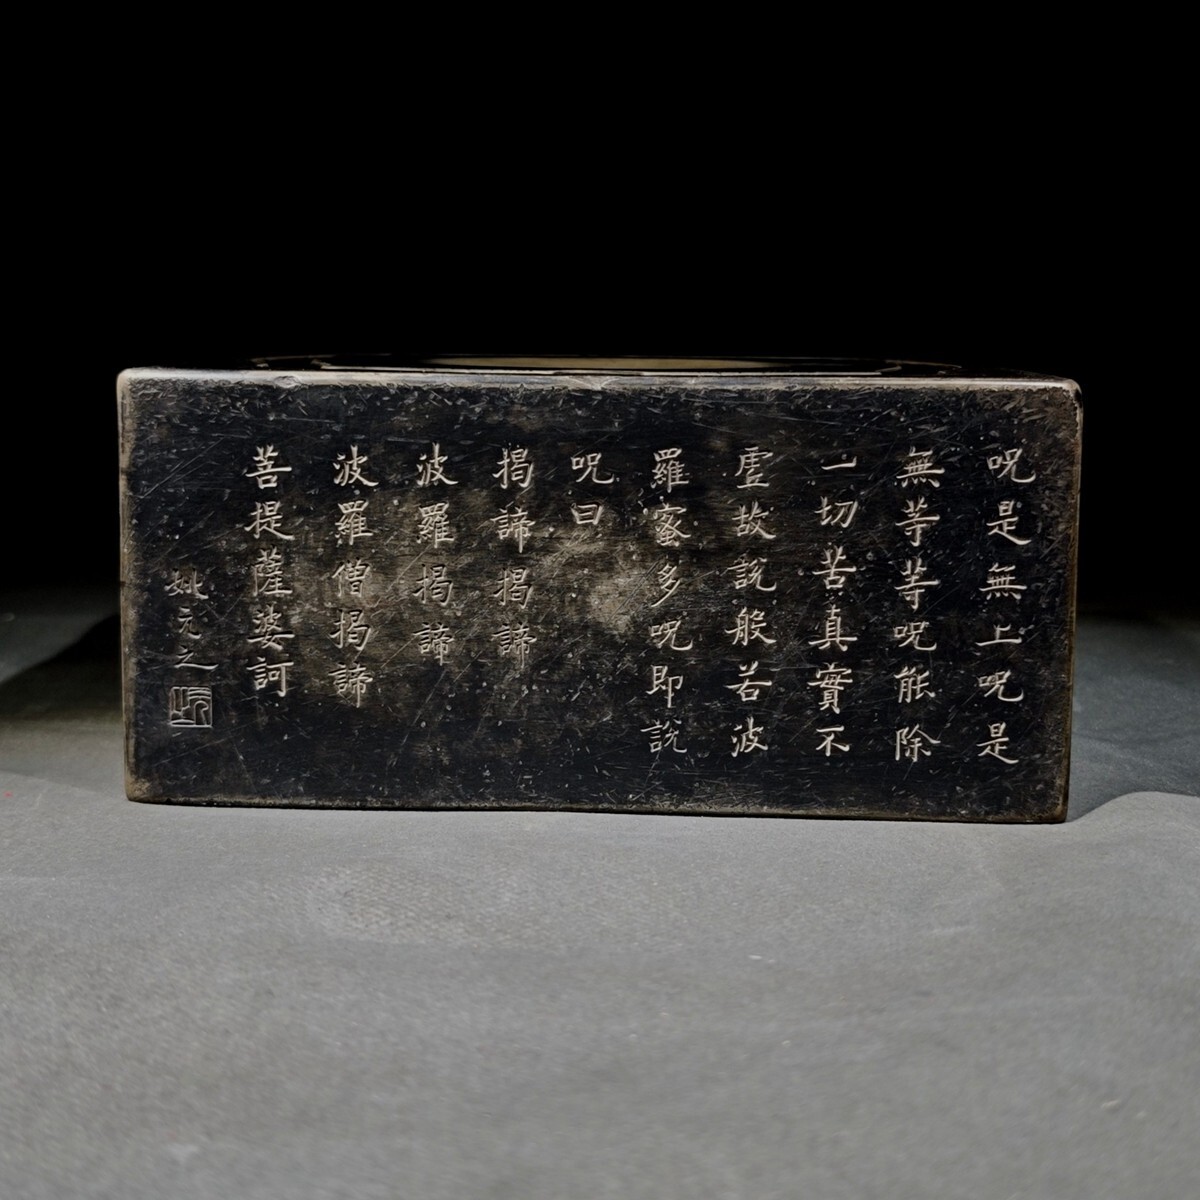 呪是無上呪是
無等等呪能除
一切苦真實不
虛故說般若波
羅蜜多呪即說
呪曰
揭諦揭諦
波羅揭諦
波羅僧揭諦
菩提薩婆訶
姚元之